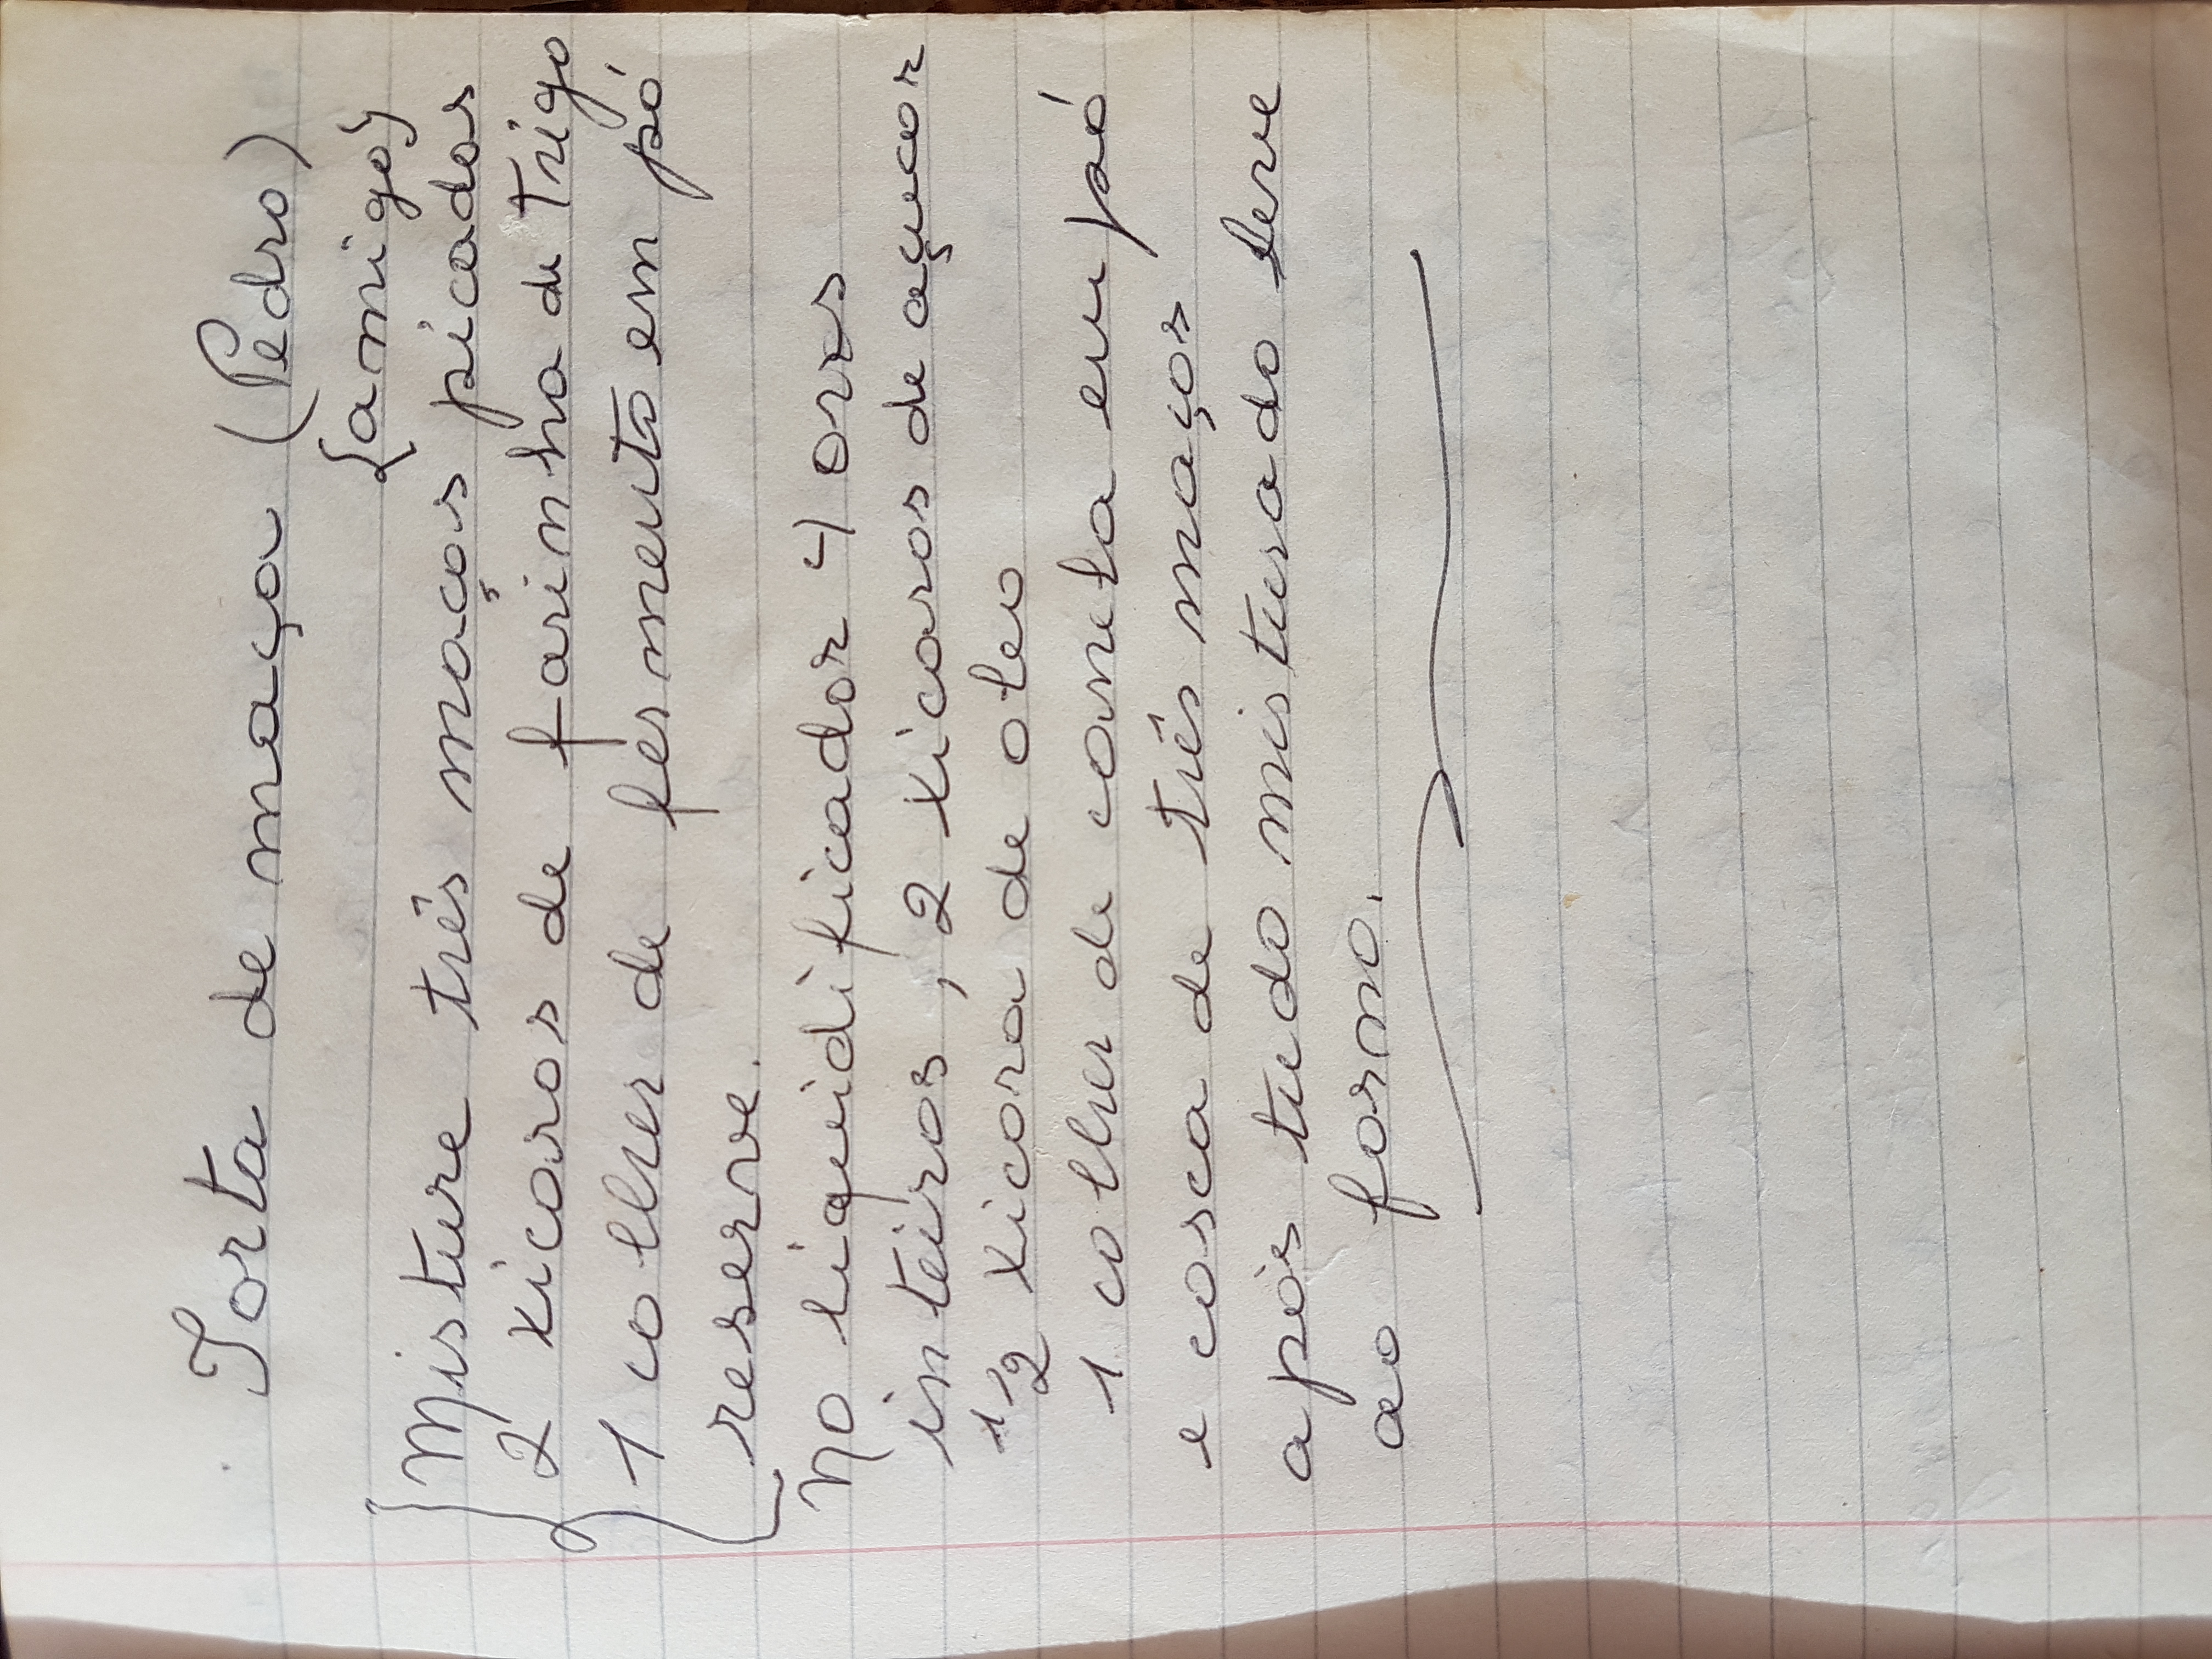 Torta de maça (Pedro)
{amigo}
Misture três maças picadas
2 xicaras de farinha de Trigo
1 colher de fermento em pó
reserve.
No liquidificador 4 ovos
inteiros, 2 xicaras de açucar
1/2 xicara de oleo
1 colher de canela em pó
e casca de três maças
após tudo misturado leve
ao forno.